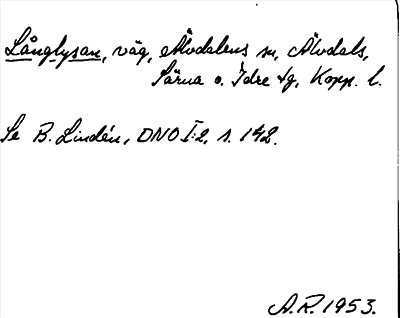 Långlysan, väg, Älvdalens sn, Älvdals,
Särna o. Idre tg, Kopp. l.
Se B. Lindén, DNO I:2, s. 142.
A.R. 1953.